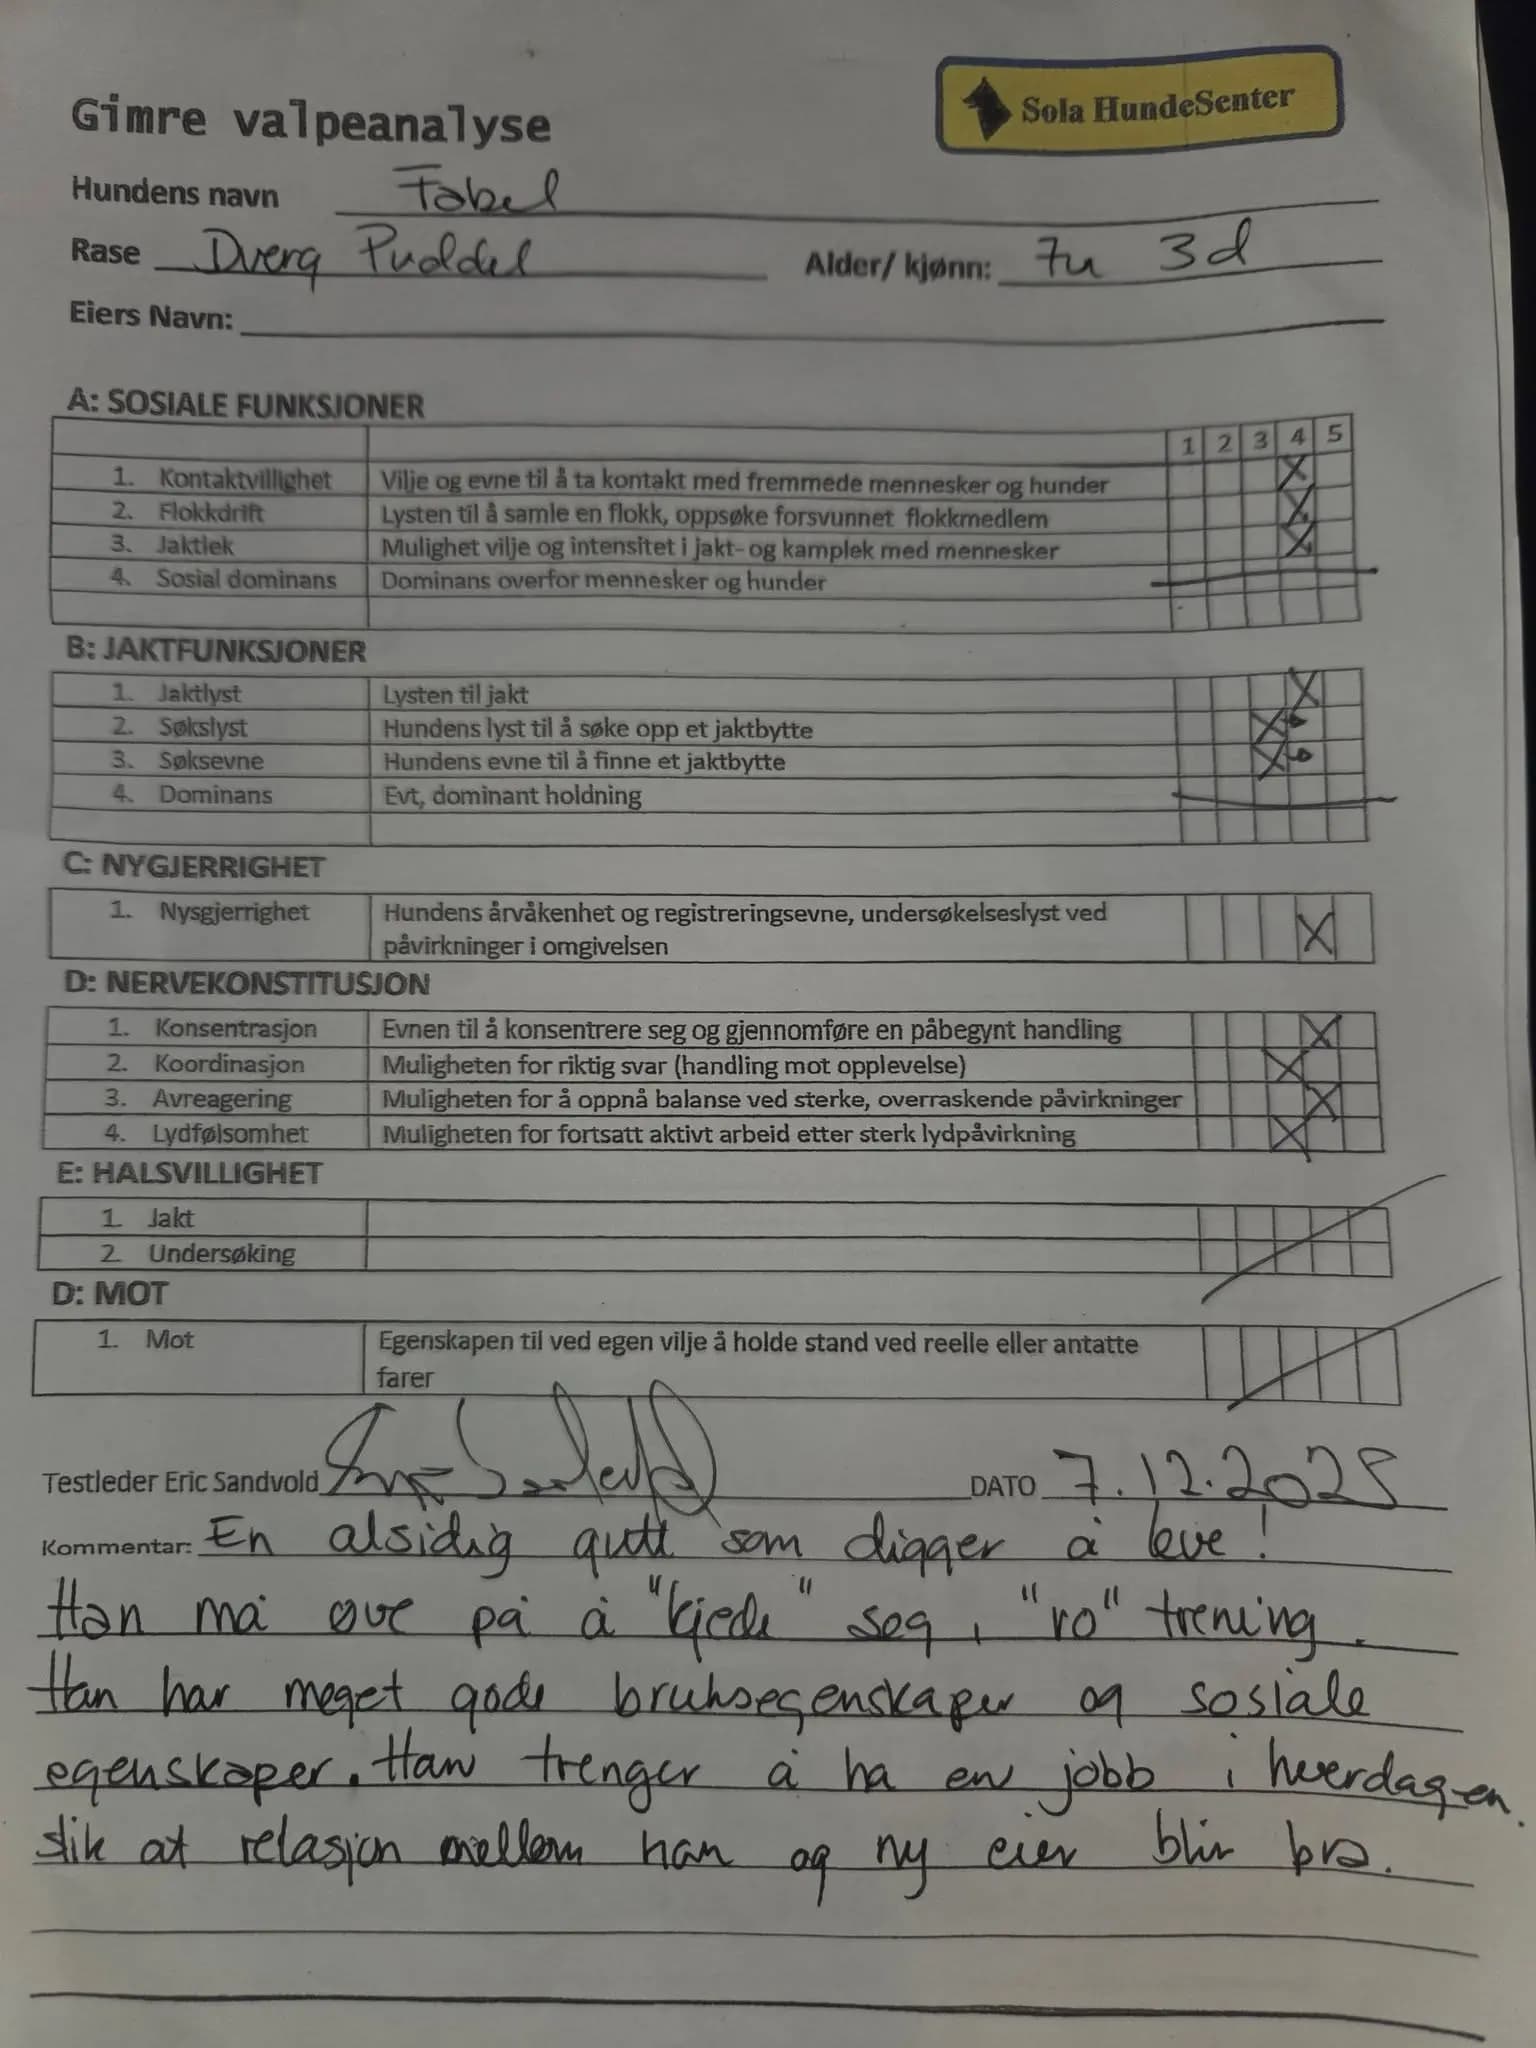 Gimre valpeanalyse
Sola HundeSenter
Hundens navn Fabel
Rase Dverg Puddel Alder/ kjønn: 7u 3d
Eiers Navn:
A: SOSIALE FUNKSJONER
1 2 3 4 5
1. Kontaktvillighet Vilje og evne til å ta kontakt med fremmede mennesker og hunder X
2. Flokkdrift Lysten til å samle en flokk, oppsøke forsvunnet flokkmedlem X
3. Jaktlek Mulighet vilje og intensitet i jakt- og kamplek med mennesker X
4. Sosial dominans Dominans overfor mennesker og hunder
B: JAKTFUNKSJONER
1. Jaktlyst Lysten til jakt X
2. Søkslyst Hundens lyst til å søke opp et jaktbytte X
3. Søksevne Hundens evne til å finne et jaktbytte X
4. Dominans Evt, dominant holdning
C: NYGJERRIGHET
1. Nysgjerrighet Hundens årvåkenhet og registreringsevne, undersøkelseslyst ved X
påvirkninger i omgivelsen
D: NERVEKONSTITUSJON
1. Konsentrasjon Evnen til å konsentrere seg og gjennomføre en påbegynt handling X
2. Koordinasjon Muligheten for riktig svar (handling mot opplevelse) X
3. Avreagering Muligheten for å oppnå balanse ved sterke, overraskende påvirkninger X
4. Lydfølsomhet Muligheten for fortsatt aktivt arbeid etter sterk lydpåvirkning X
E: HALSVILLIGHET
1. Jakt
2. Undersøking
D: MOT
1. Mot Egenskapen til ved egen vilje å holde stand ved reelle eller antatte
farer
Testleder Eric Sandvold DATO 7.12.2025
Kommentar: En alsidig gutt som digger å leve!
Han må øve på å "kjede" seg, "ro" trening.
Han har meget gode bruksegenskaper og sosiale
egenskaper. Han trenger å ha en jobb i hverdagen.
slik at relasjon mellom han og ny eier blir bra.